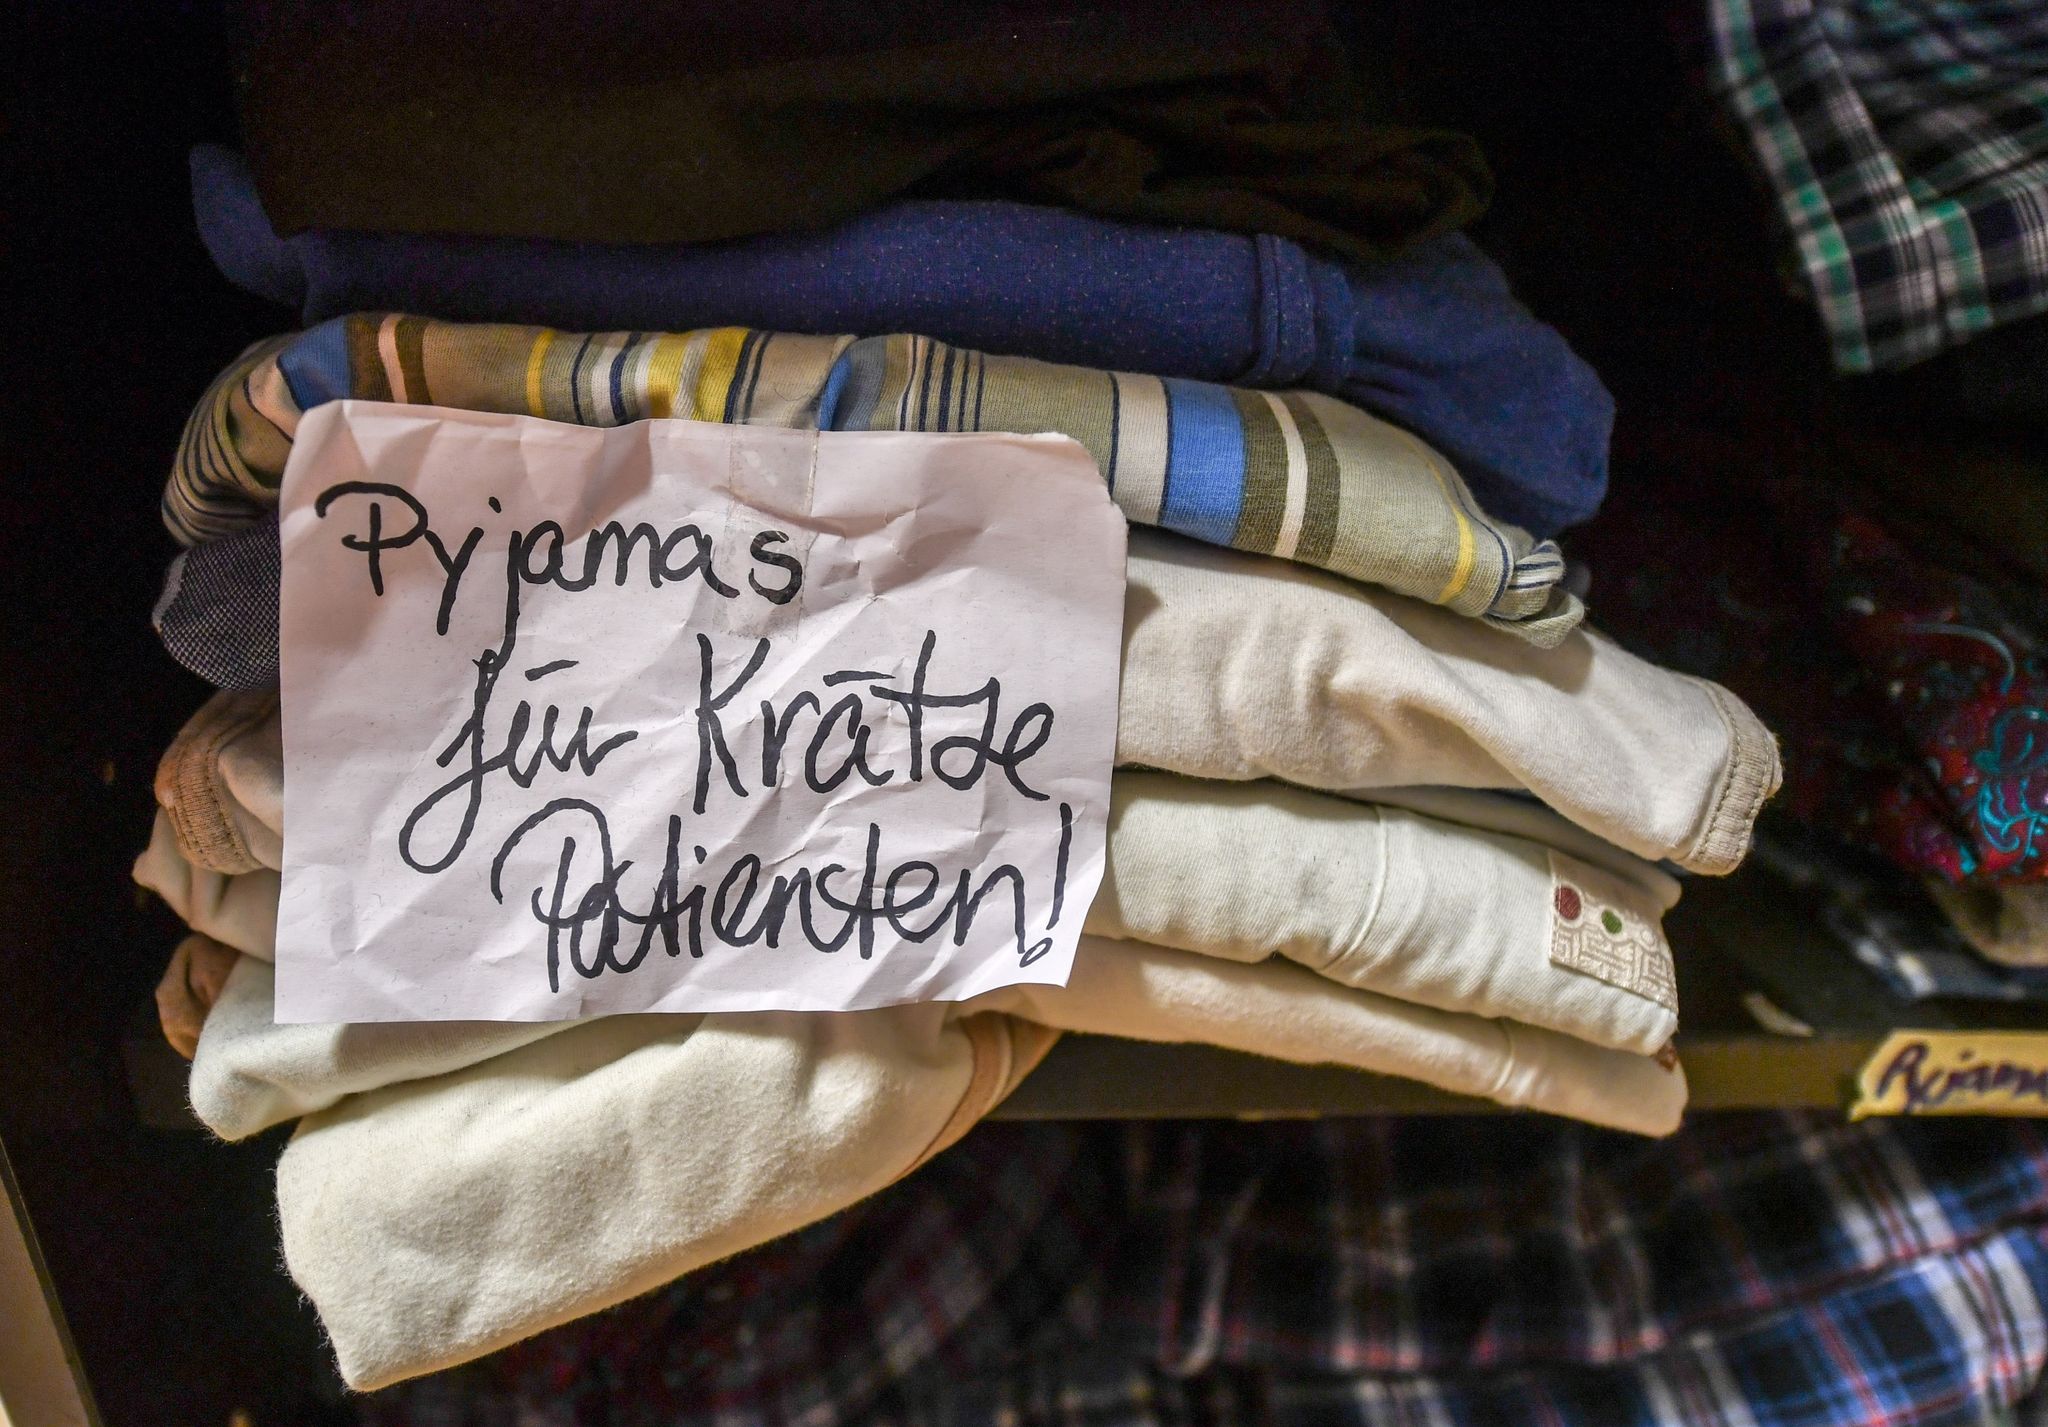 Pyjamas
für Krätze
Patiensten!